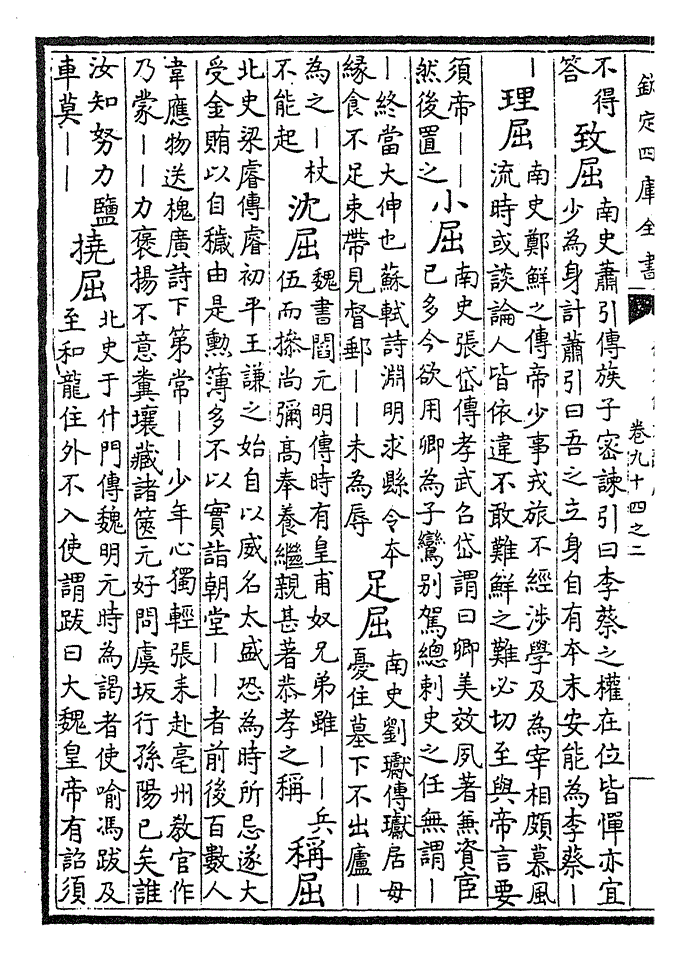 欽定四庫全書
卷九十四之二
不得
答
致屈
南史蕭引傳族子密諫引曰李蔡之權在位皆憚亦宜
少為身計蕭引曰吾之立身自有本末安能為李蔡—
—
理屈
南史鄭鮮之傳帝少事戎旅不經涉學及為宰相頗慕風
流時或談論人皆依違不敢難鮮之難必切至與帝言要
須帝——
然後置之
小屈
南史張岱傳孝武召岱謂曰卿美效夙著兼資宦
已多今欲用卿為子鸞别駕總刺史之任無謂—
—終當大伸也蘇軾詩淵明求縣令本
縁食不足束帶見督郵——未為辱
足屈
南史劉瓛傳瓛居母
憂住墓下不出廬—
為之—杖
不能起
沈屈
魏書閻元明傳時有皇甫奴兄弟雖——兵
伍而摻尚彌髙奉養繼親甚著恭孝之稱
稱屈
北史梁睿傳睿初平王謙之始自以威名太盛恐為時所忌遂大
受金賄以自穢由是勲簿多不以實詣朝堂——者前後百數人
韋應物送槐廣詩下第常——少年心獨輕張耒赴亳州教官作
乃蒙——力褒揚不意糞壤藏諸篋元好問虞坂行孫陽已矣誰
汝知努力鹽
車莫——
撓屈
北史于什門傳魏明元時為謁者使喻馮跋及
至和龍住外不入使謂跋曰大魏皇帝有詔須